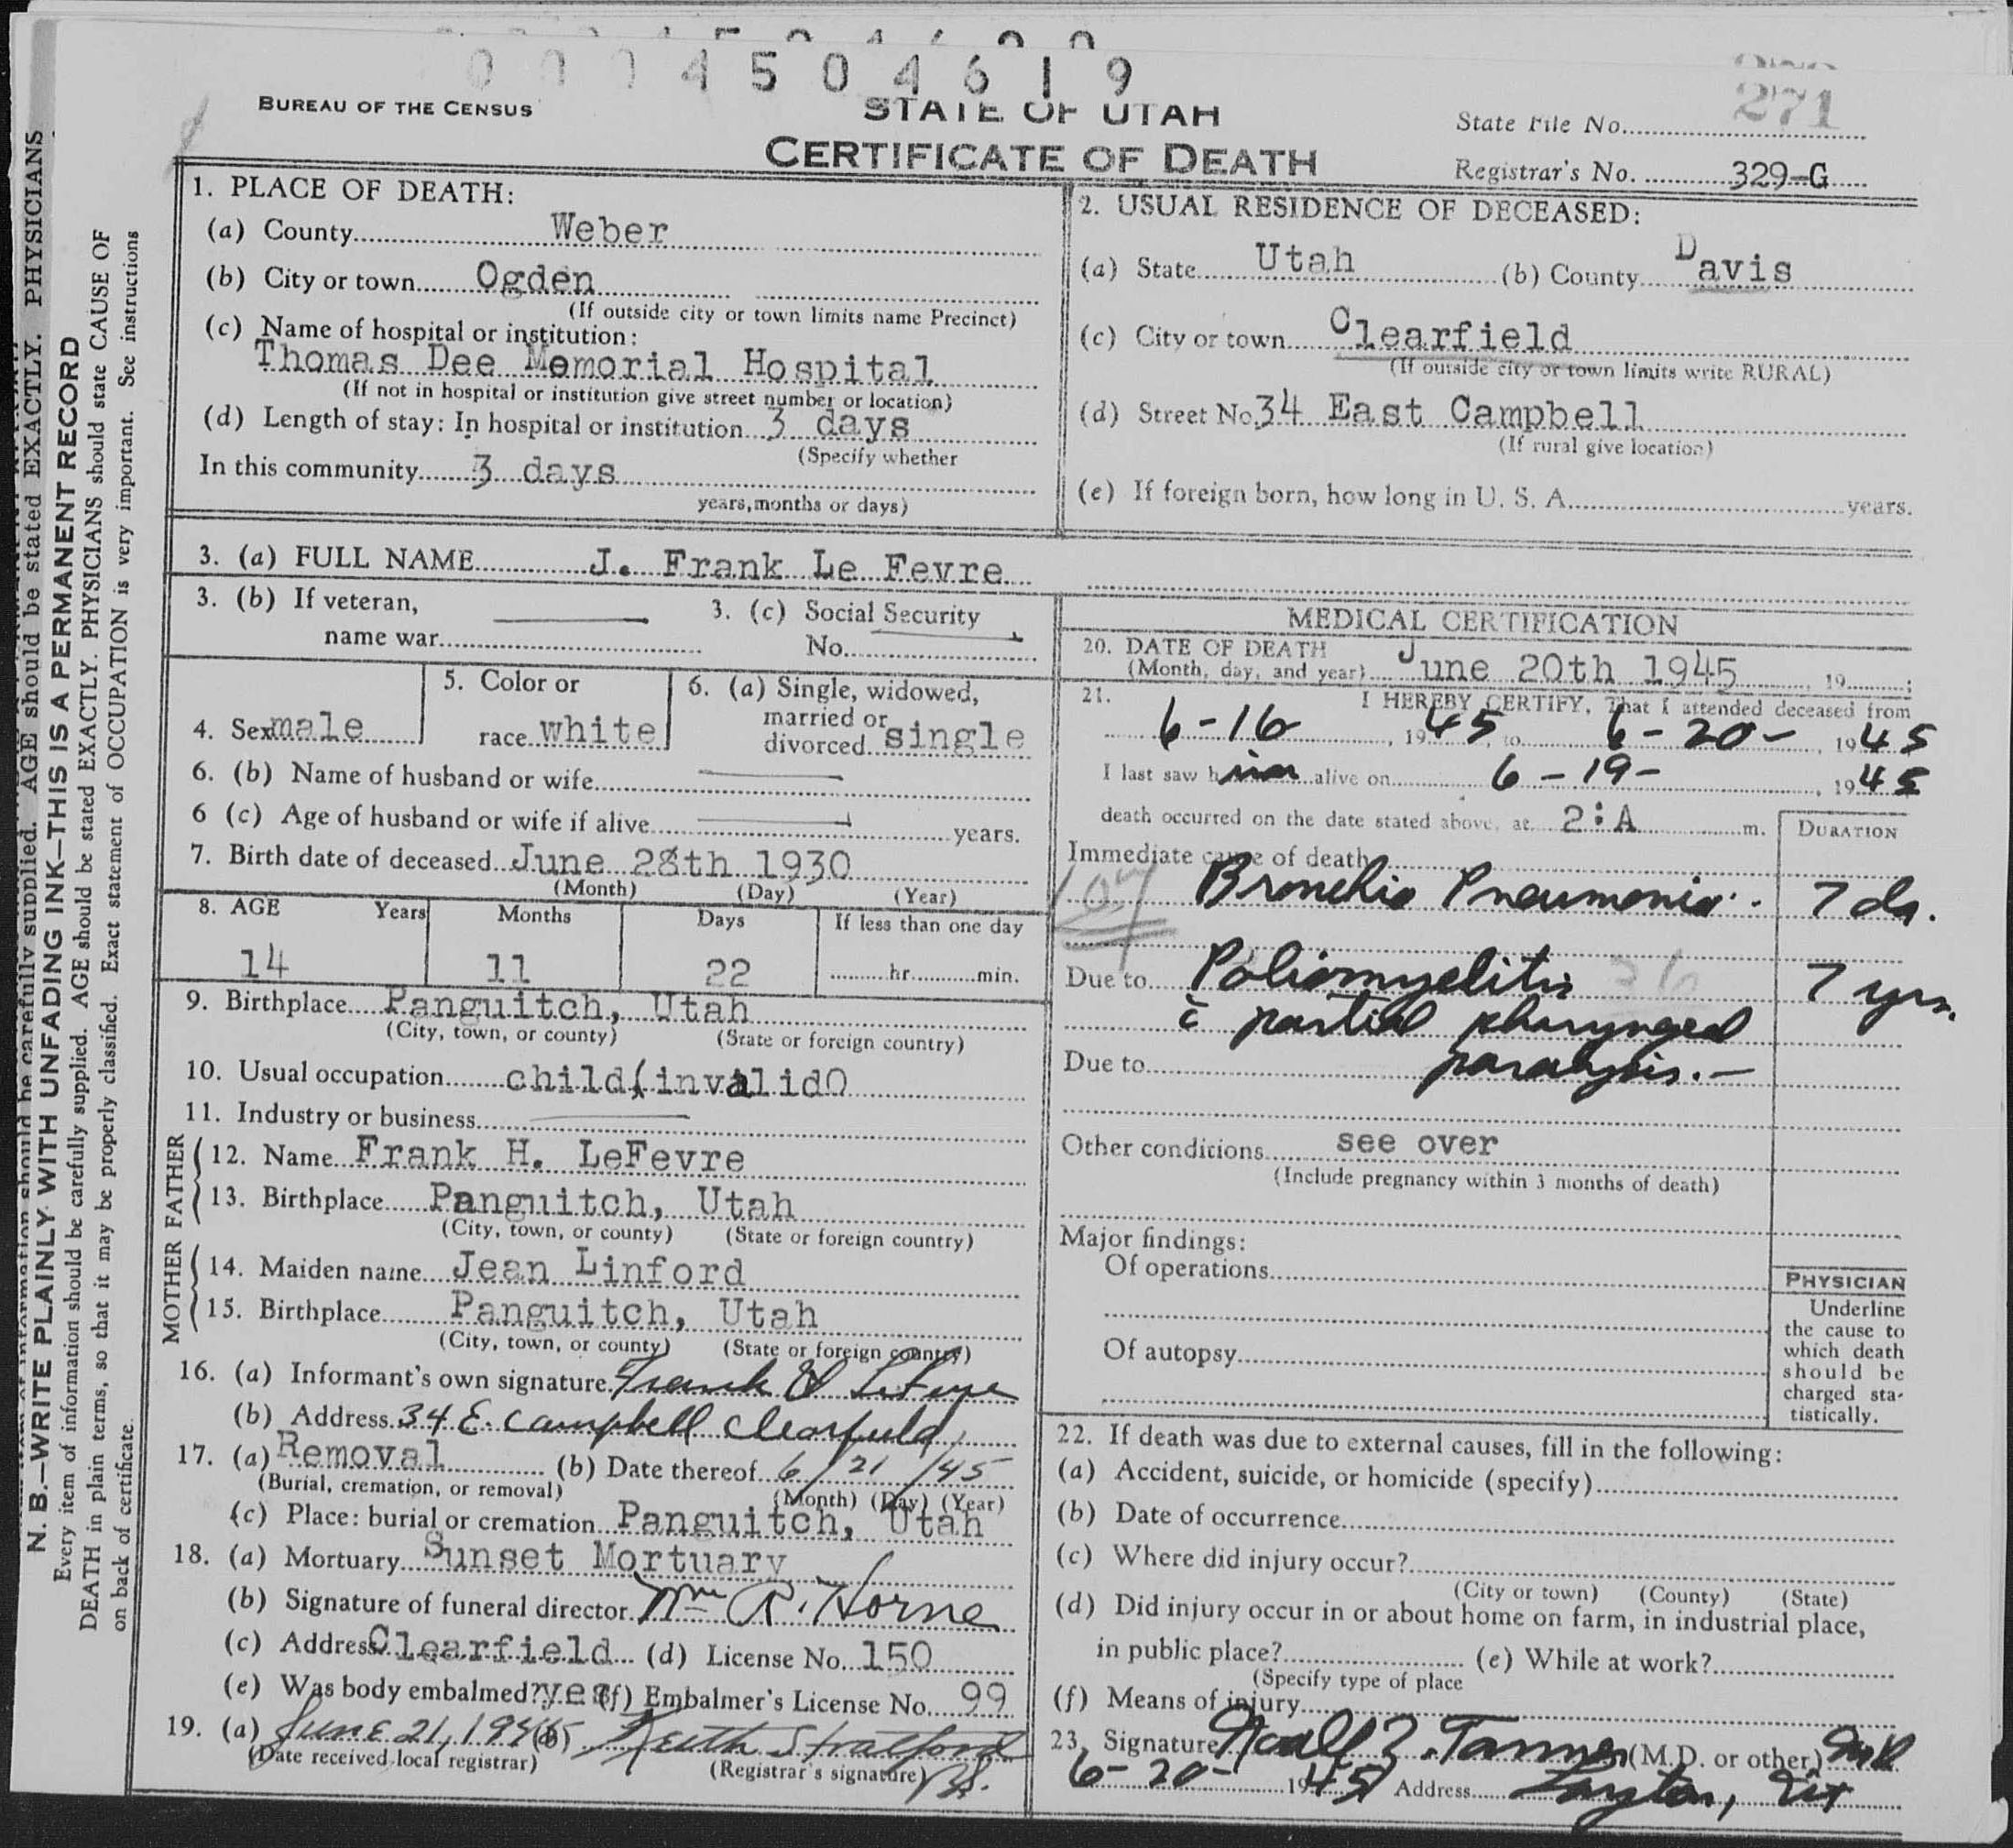 0 0 0 4 5 0 4 6 1 9
271
BUREAU OF THE CENSUS
STATE OF UTAH
CERTIFICATE OF DEATH
State File No.
Registrar's No. 329-G
1. PLACE OF DEATH:
(a) County Weber
(b) City or town Ogden
(If outside city or town limits name Precinct)
(c) Name of hospital or institution:
Thomas Dee Memorial Hospital
(If not in hospital or institution give street number or location)
(d) Length of stay: In hospital or institution 3 days
(Specify whether
In this community 3 days
years, months or days)
2. USUAL RESIDENCE OF DECEASED:
(a) State Utah (b) County Davis
(c) City or town Clearfield
(If outside city or town limits write RURAL)
(d) Street No. 34 East Campbell
(If rural give location)
(e) If foreign born, how long in U. S. A. years.
3. (a) FULL NAME J. Frank Le Fevre
3. (b) If veteran,
name war
3. (c) Social Security
No.
4. Sex male
5. Color or
race white
6. (a) Single, widowed,
married or
divorced single
6. (b) Name of husband or wife
6 (c) Age of husband or wife if alive years.
7. Birth date of deceased June 28th 1930
(Month) (Day) (Year)
8. AGE Years Months Days If less than one day
14 11 22 hr. min.
9. Birthplace Panguitch, Utah
(City, town, or county) (State or foreign country)
10. Usual occupation child(invalid)
11. Industry or business
FATHER
12. Name Frank H. LeFevre
13. Birthplace Panguitch, Utah
(City, town, or county) (State or foreign country)
MOTHER
14. Maiden name Jean Linford
15. Birthplace Panguitch, Utah
(City, town, or county) (State or foreign country)
16. (a) Informant's own signature Frank H LeFevre
(b) Address 34 E. Campbell Clearfield,
17. (a) Removal (b) Date thereof 6/21/45
(Burial, cremation, or removal) (Month) (Day) (Year)
(c) Place: burial or cremation Panguitch, Utah
18. (a) Mortuary Sunset Mortuary
(b) Signature of funeral director Wm R. Horne
(c) Address Clearfield (d) License No. 150
(e) Was body embalmed? yes (f) Embalmer's License No. 99
19. (a) June 21, 1945 (b) Keith Stratford
(Date received local registrar) (Registrar's signature)
MEDICAL CERTIFICATION
20. DATE OF DEATH
(Month, day, and year) June 20th 1945, 19 ;
21. I HEREBY CERTIFY, That I attended deceased from
6-16, 1945, to 6-20-, 1945
I last saw him alive on 6-19-, 1945
death occurred on the date stated above, at 2:A m.
DURATION
Immediate cause of death
107
Bronchio Pneumonia. 7 da.
Due to Poliomyelitis 36 7 yrs.
c̄ partial pharyngeal
Due to paralysis.-
Other conditions see over
(Include pregnancy within 3 months of death)
Major findings:
Of operations
Of autopsy
PHYSICIAN
Underline
the cause to
which death
should be
charged sta-
tistically.
22. If death was due to external causes, fill in the following:
(a) Accident, suicide, or homicide (specify)
(b) Date of occurrence
(c) Where did injury occur?
(City or town) (County) (State)
(d) Did injury occur in or about home on farm, in industrial place,
in public place? (e) While at work?
(Specify type of place
(f) Means of injury
23. Signature Noall Z. Tanner (M.D. or other) MD
6-20- 1945 Address Layton, Ut
N. B.—WRITE PLAINLY WITH UNFADING INK—THIS IS A PERMANENT RECORD
Every item of information should be carefully supplied. AGE should be stated EXACTLY. PHYSICIANS should state CAUSE OF
DEATH in plain terms, so that it may be properly classified. Exact statement of OCCUPATION is very important. See instructions
on back of certificate.